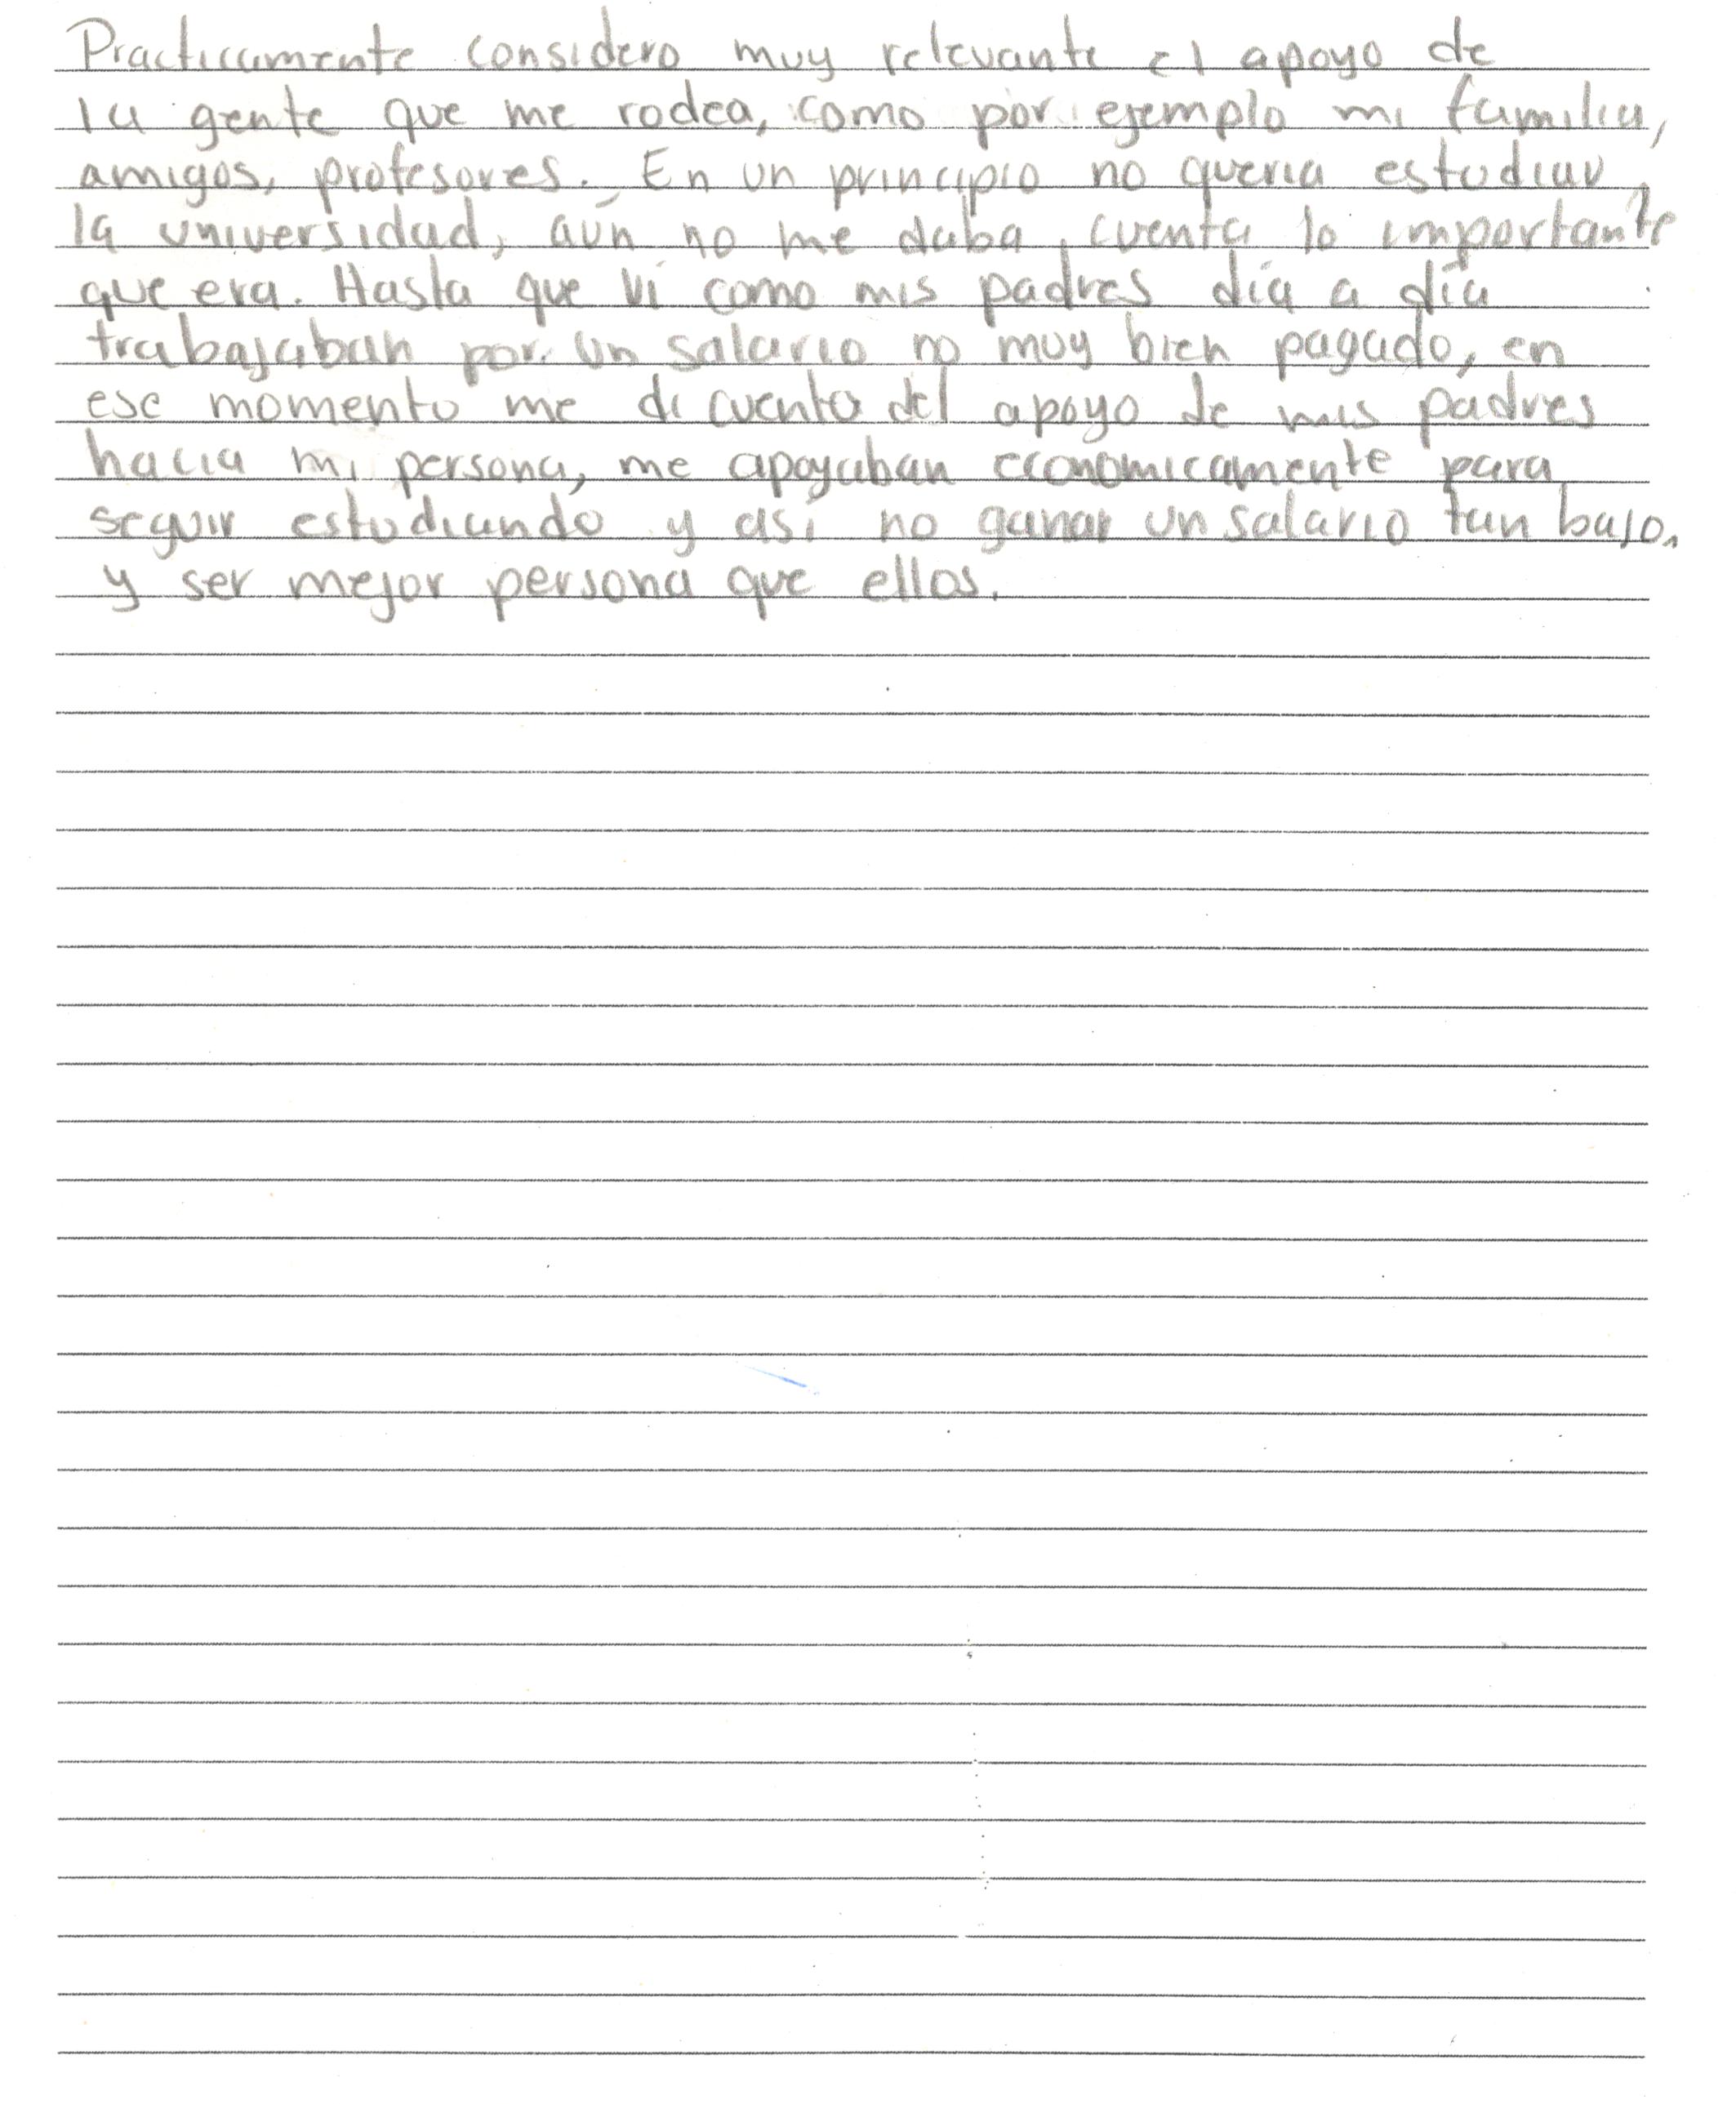 Practicamente considero muy relevante el apoyo de
la gente que me rodea, como por ejemplo mi familia,
amigos, profesores. En un principio no queria estudiar
la universidad, aún no me daba cuenta lo importante
que era. Hasta que ví como mis padres día a día
trabajaban por un salario no muy bien pagado, en
ese momento me di cuenta del apoyo de mis padres
hacia mi persona, me apoyaban economicamente para
seguir estudiando y así no ganar un salario tan bajo,
y ser mejor persona que ellos.